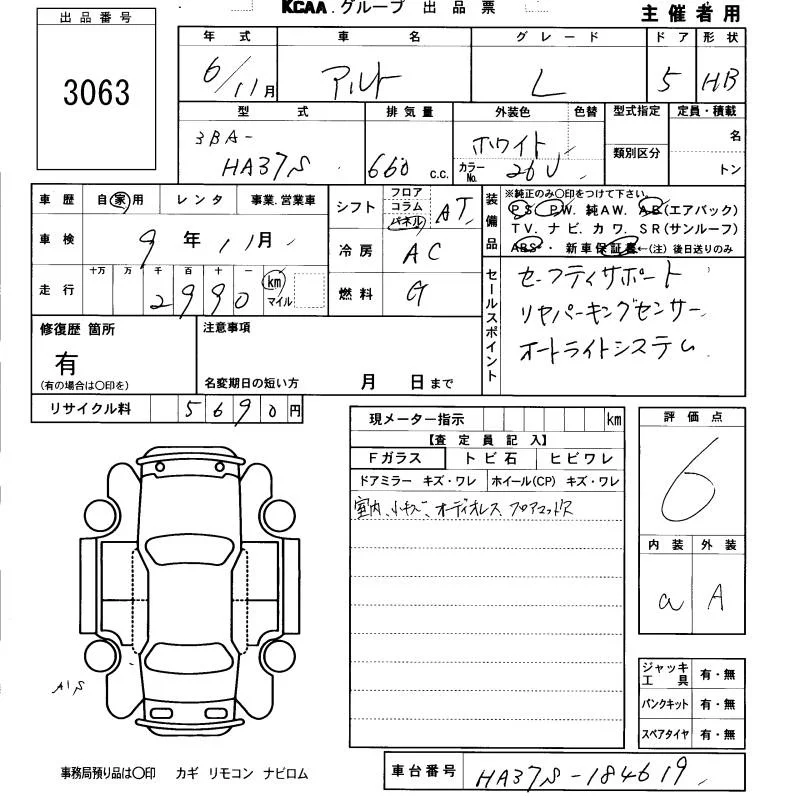 KCAA.グループ 出品票
主催者用
出品番号
3063
年式 車名 グレード ドア 形状
6/11月 アルト L 5 HB
型式 排気量 外装色 色替 型式指定 定員・積載
3BA-
HA37S 660 c.c. ホワイト カラーNo. 26U 類別区分 名
トン
車歴 自家用 レンタ 事業.営業車
車検 9年11月
走行 十万 万 千 百 十 一
2990 km マイル
シフト フロア コラム パネル AT
冷房 AC
燃料 G
装備品
※純正のみ○印をつけて下さい.
PS PW. 純AW. AB(エアバック)
TV. ナビ. カワ. SR(サンルーフ)
ABS・ ・新車保証書←(注)後日送りのみ
セールスポイント
セーフティサポート
リヤパーキングセンサー
オートライトシステム
修復歴 箇所
有
(有の場合は○印を)
注意事項
名変期日の短い方 月 日まで
リサイクル料 5690円
現メーター指示 km
【査定員記入】
Fガラス トビ石 ヒビワレ
ドアミラー キズ・ワレ ホイール(CP) キズ・ワレ
室内、小キズ、オーディオレス フロアマットX
評価点
6
内装 外装
a A
A1S
ジャッキ工具 有・無
パンクキット 有・無
スペアタイヤ 有・無
事務局預り品は○印 カギ リモコン ナビロム
車台番号 HA37S-184619